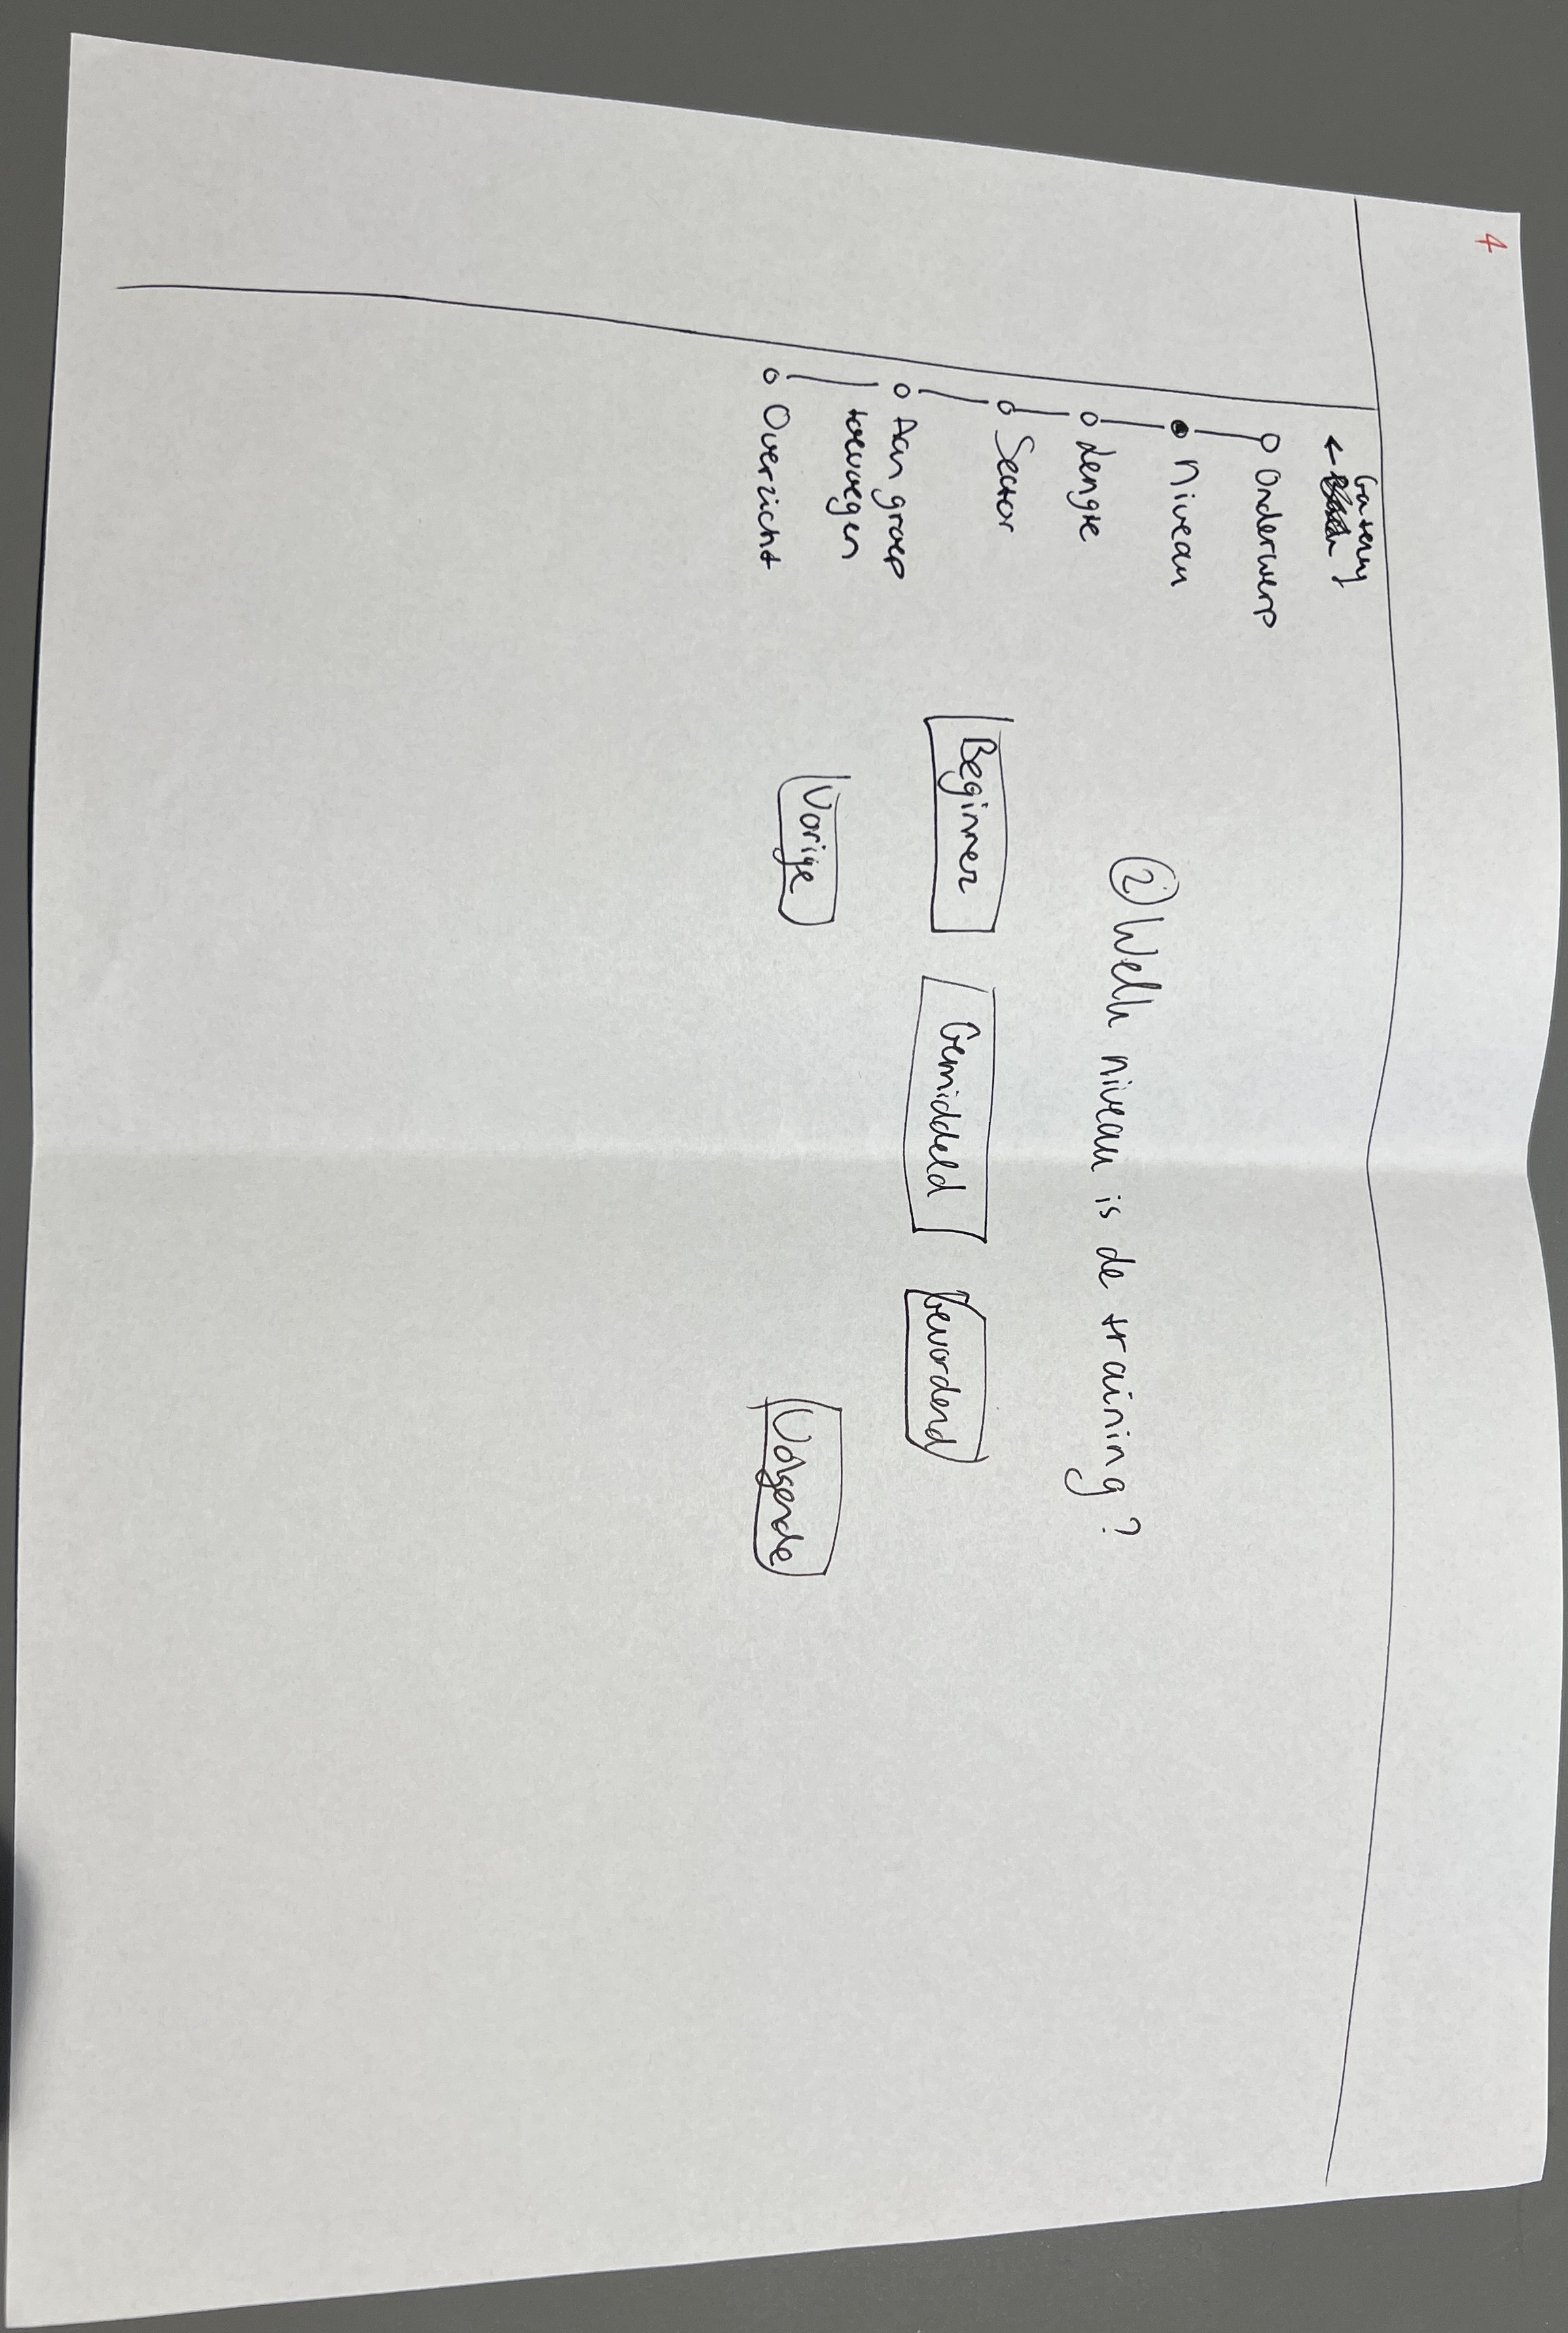 4
←
Onderwerp
Niveau
Lengte
Sector
Aan groep
toevoegen
Overzicht
② Welk niveau is de training?
Beginner
Gemiddeld
Gevorderd
Vorige
Volgende